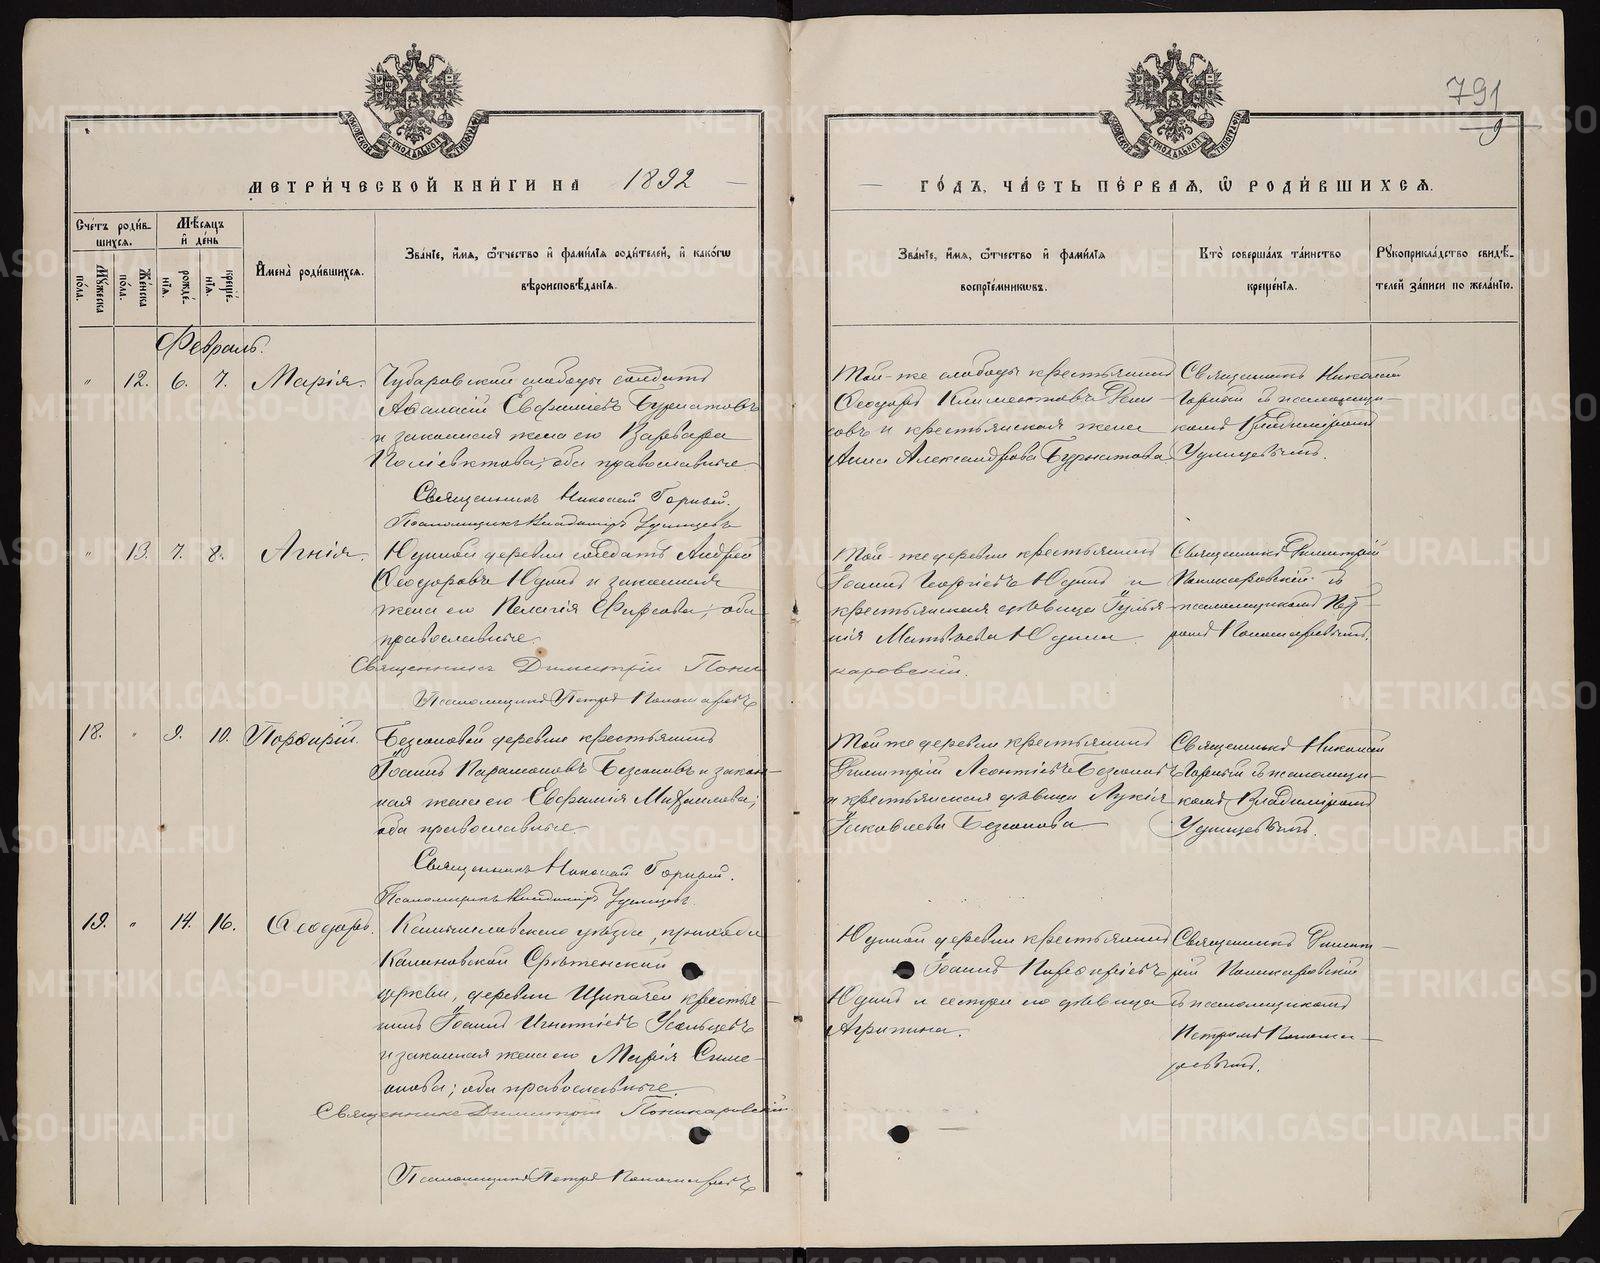 791
9
МЕТРИ́ЧЕСКОЙ КНИ́ГИ НА 1892
ГО́ДЪ, ЧА́СТЬ ПЕ́РВАЯ, Ѽ РОДИ́ВШИХСЯ.
Сче́тъ роди́в-
шихся.
Мꙋжеска по́ла.
Же́нска по́ла.
Мѣ́сяцъ
и҆ де́нь
рожде́-
нїя.
креще́-
нїя.
И҆мена̀ роди́вшихся.
Зва́нїе, и҆́мя, ѻ҆́тчество и҆ фами́лїя роди́телей, и҆ како́гѡ
вѣроисповѣ́данїя.
Зва́нїе, и҆́мя, ѻ҆́тчество и҆ фами́лїя
воспрїе́мникѡвъ.
Кто̀ соверша́лъ та́инство
креще́нїя.
Рꙋкоприкла́дство свидѣ́-
телей за́писи по жела́нїю.
Февраль.
" 12. 6. 7. Марія.
Чубаровской слободы солдатъ
Аѳанасій Евфиміевъ Бурматовъ
и законная жена его Варвара
Поліевктова; оба православные
Священникъ Николай Горный.
Псаломщикъ Владиміръ Удинцевъ
Той-же слободы крестьянинъ
Ѳеодоръ Климентовъ
совъ и крестьянская жена
Анна Александрова Бурматова
Священникъ Николай
Горный съ псаломщи-
комъ Владиміромъ
Удинцевымъ.
" 13. 7. 8. Агнія.
Юдиной деревни солдатъ Андрей
Ѳеодоровъ Юдинъ и законная
жена его Пелагія Фирсова; оба
православные.
Священникъ Димитрій Пони
каровскій.
Псаломщикъ Петръ Пономаревъ
Той-же деревни крестьянинъ
Іоаннъ Георгіевъ Юдинъ и
крестьянская дѣвица Іулі
нія Матѳеева Юдина.
Священникъ Димитрій
Поникаровскій съ
псаломщикомъ Пет
ромъ Пономаревымъ.
18. " 9. 10. Порфирій.
Безсоновой деревни крестьянинъ
Іоаннъ Парамоновъ Безсоновъ и закон-
ная жена его Евфимія Михаилова;
оба православные.
Священникъ Николай Горный.
Псаломщикъ Владиміръ Удинцевъ.
Той же деревни крестьянинъ
Димитрій Леонтіевъ Безсоновъ
и крестьянская дѣвица Лукія
Іаковлева Безсонова
Священникъ Николай
Горный съ псаломщи-
комъ Владиміромъ
Удинцевымъ.
19. " 14. 16. Ѳеодоръ.
Камышловскаго уѣзда, прихода
Калиновской Срѣтенской
церкви, деревни Щипачей крестья-
нинъ Іоаннъ Игнатіевъ Усольцевъ
и законная жена его Марія Симе-
онова; оба православные.
Священникъ Димитрій Поникаровскій
Псаломщикъ Петръ Пономаревъ
Юдиной деревни крестьянинъ
Іоаннъ Порфиріевъ
Юдинъ и сестра его дѣвица
Агрипина.
Священникъ Димит-
рій Поникаровскій
съ псаломщикомъ
Петромъ Понома-
ревымъ.